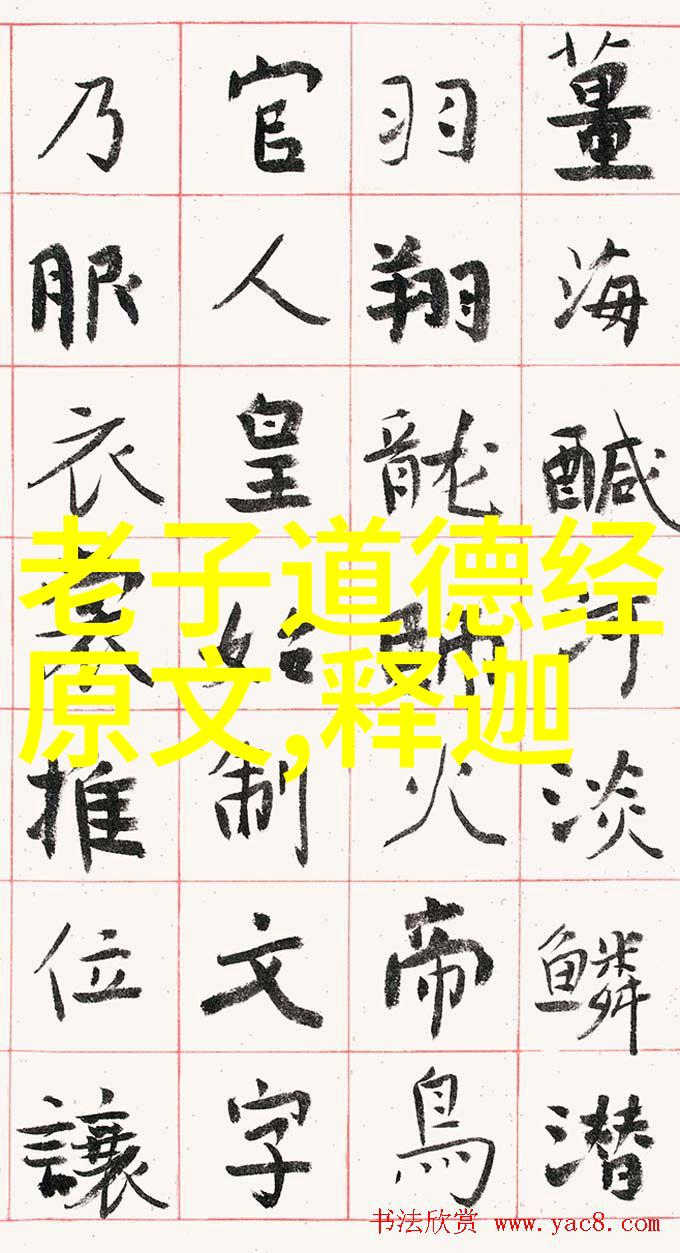 薑海醎河淡鱗潜
羽翔龍師火帝鳥
官人皇始制文字
乃服衣裳推位讓
老子道德经
原文,释迦
书法欣赏 www.yac8.com